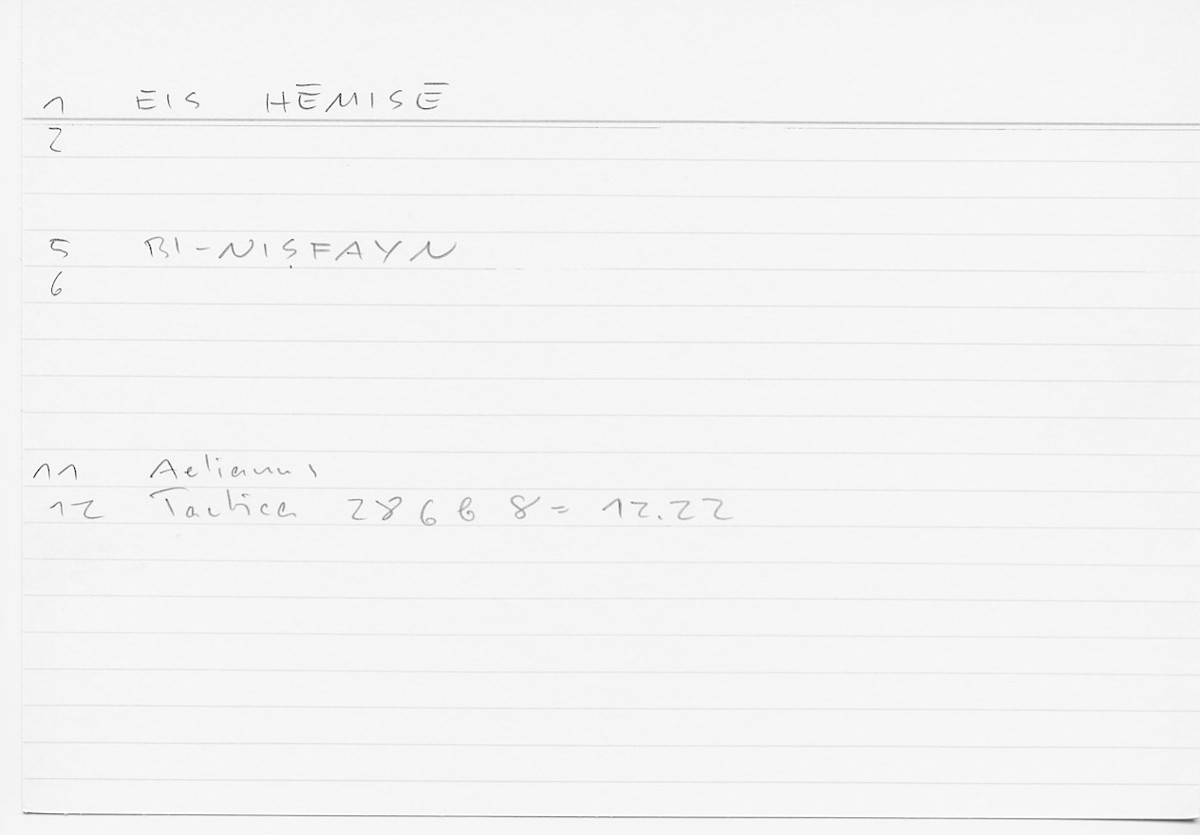 1 EIS HĒMISĒ
2
5 BI-NIṢFAYN
6
11 Aelianus
12 Tactica 286 b 8 = 12.22